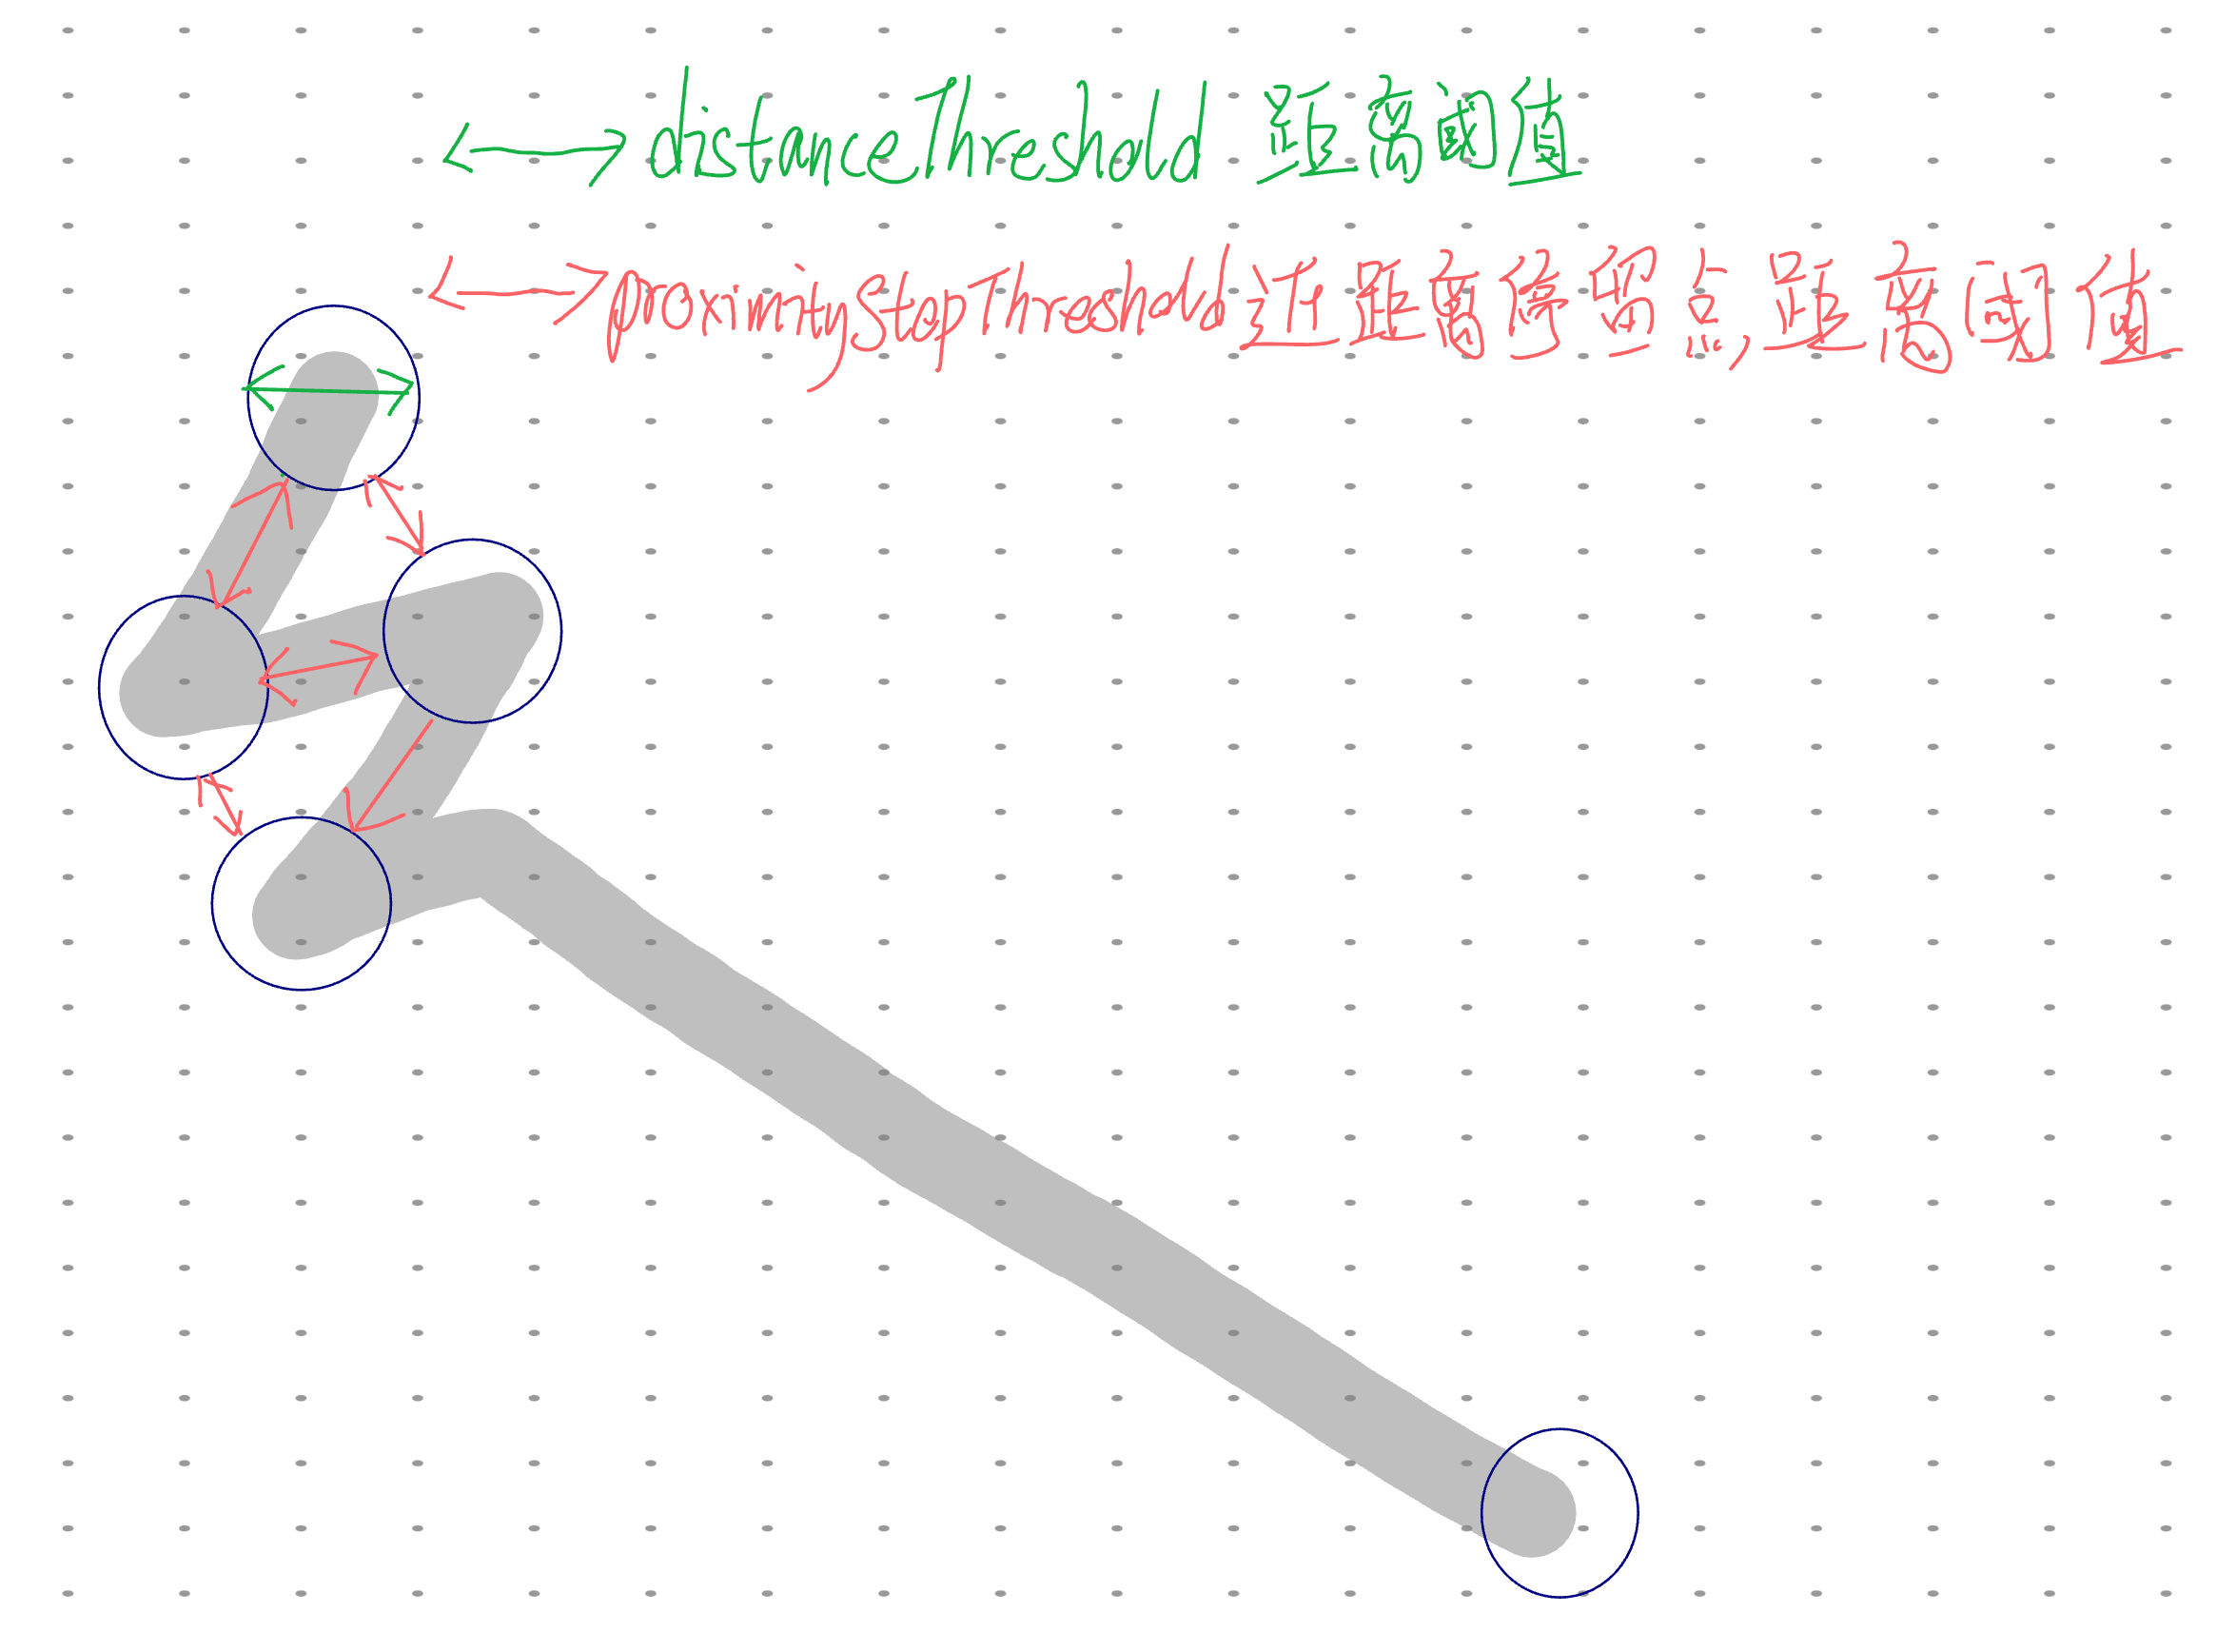 distanceThreshold 距离阈值
proximityStopThreshold 近距离停留点,距离阈值